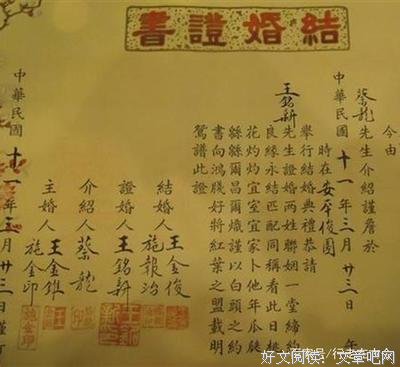 結婚證書
今由
蔡龍先生介紹謹詹於
中華民國十一年三月廿三日 年
時在安平俊園
舉行結婚典禮恭請
王銘新先生證婚兩姓聯姻一堂締約
良緣永結匹配同稱看此日桃
花灼灼宜室宜家卜他年瓜瓞
緜緜爾昌爾熾謹以白頭之約
書向鴻牋好將紅葉之盟載明
鴛譜此證
結婚人 王金俊
施報治
證婚人 王銘新
介紹人 蔡龍
主婚人 王金錐
施金印
中華民國十一年三月廿三日謹訂
施金印
好文阅读:文章吧网